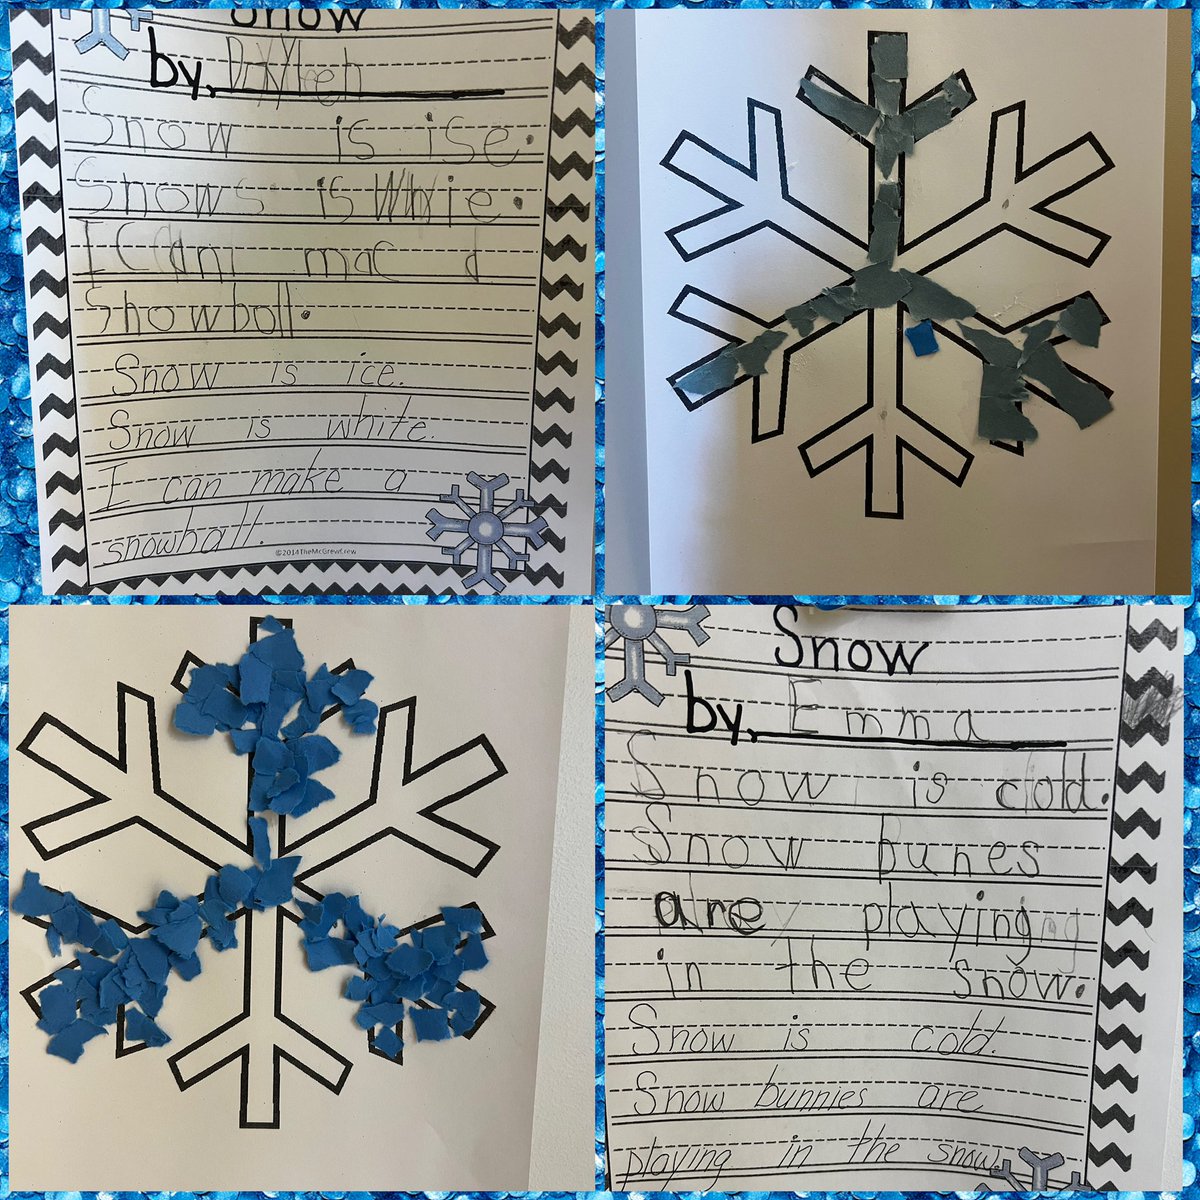 Snow
by,
Snow is ise.
Snows is Whie.
I Can mac a
Snowboll.
Snow is ice.
Snow is white.
I can make a
snowball.
©2014TheMcGrewCrew
Snow
by, Emma
Snow is cold.
Snow bunes
are playing
in the snow.
Snow is cold.
Snow bunnies are
playing in the snow.